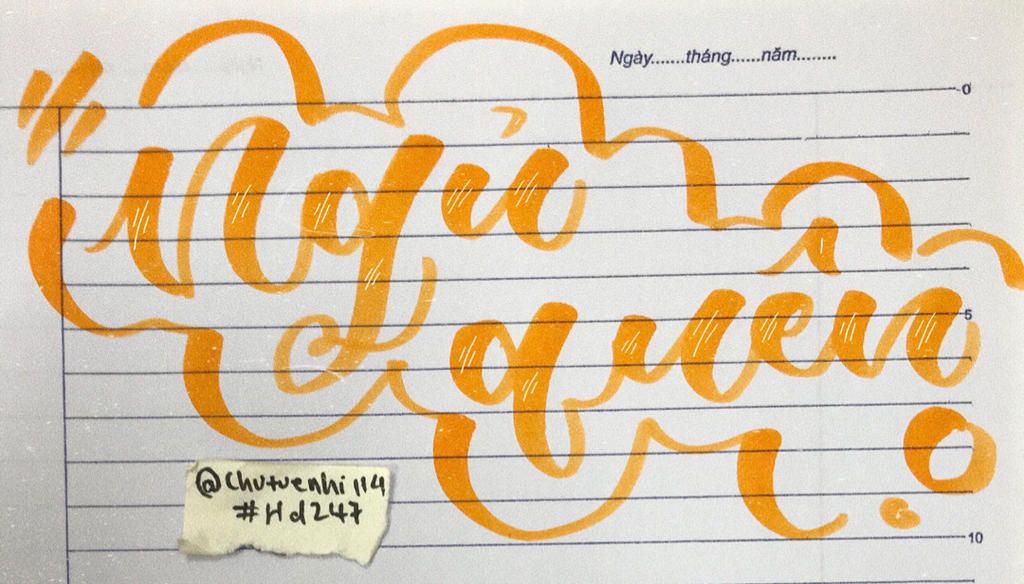 Ngày.......tháng......năm........
0
Ngủ
5
quên
@chutuenhi114
#Hd247
10